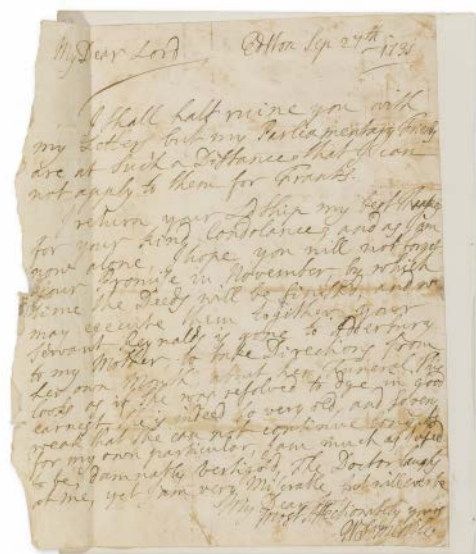 My Dear Lord Sep 27th
173
I shall half ruine you with
my Letters but my Parliamentary
are at such a Distance that I can
not apply to them for Franks.
I return your Lship my best thanks
for your kind Condolance, and as I am
now alone, I hope you will not forget
your Promise in November, by which
time the Deeds will be finished, and we
may execute them together, your
Servant Reynalds is gone to Adderbury
to my Mother, to take Directions from
her own Mouth about her Funeral, this
looks as if she was resolved to Dye in good
earnest, she is indeed so very old, and so very
weak that she can not continue long, &
for my own particular, I am much as I used
to be, damnably the Doctor laughs
at me, yet I am very Miserable
My Dear
most affectionately yours